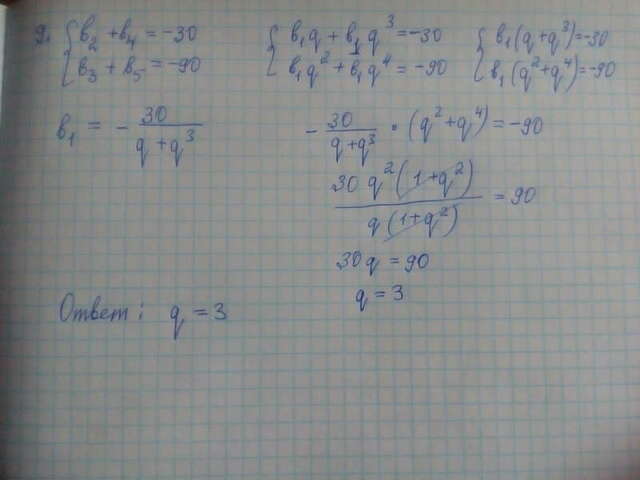 9. { b₂ + b₄ = -30   { b₁q + b₁q³ = -30   { b₁(q+q³) = -30
{ b₃ + b₅ = -90   { b₁q² + b₁q⁴ = -90   { b₁(q²+q⁴) = -90
b₁ = - 30/(q+q³)   - 30/(q+q³) • (q²+q⁴) = -90
30q²(1+q²)/q(1+q²) = 90
30q = 90
q = 3
Ответ: q = 3